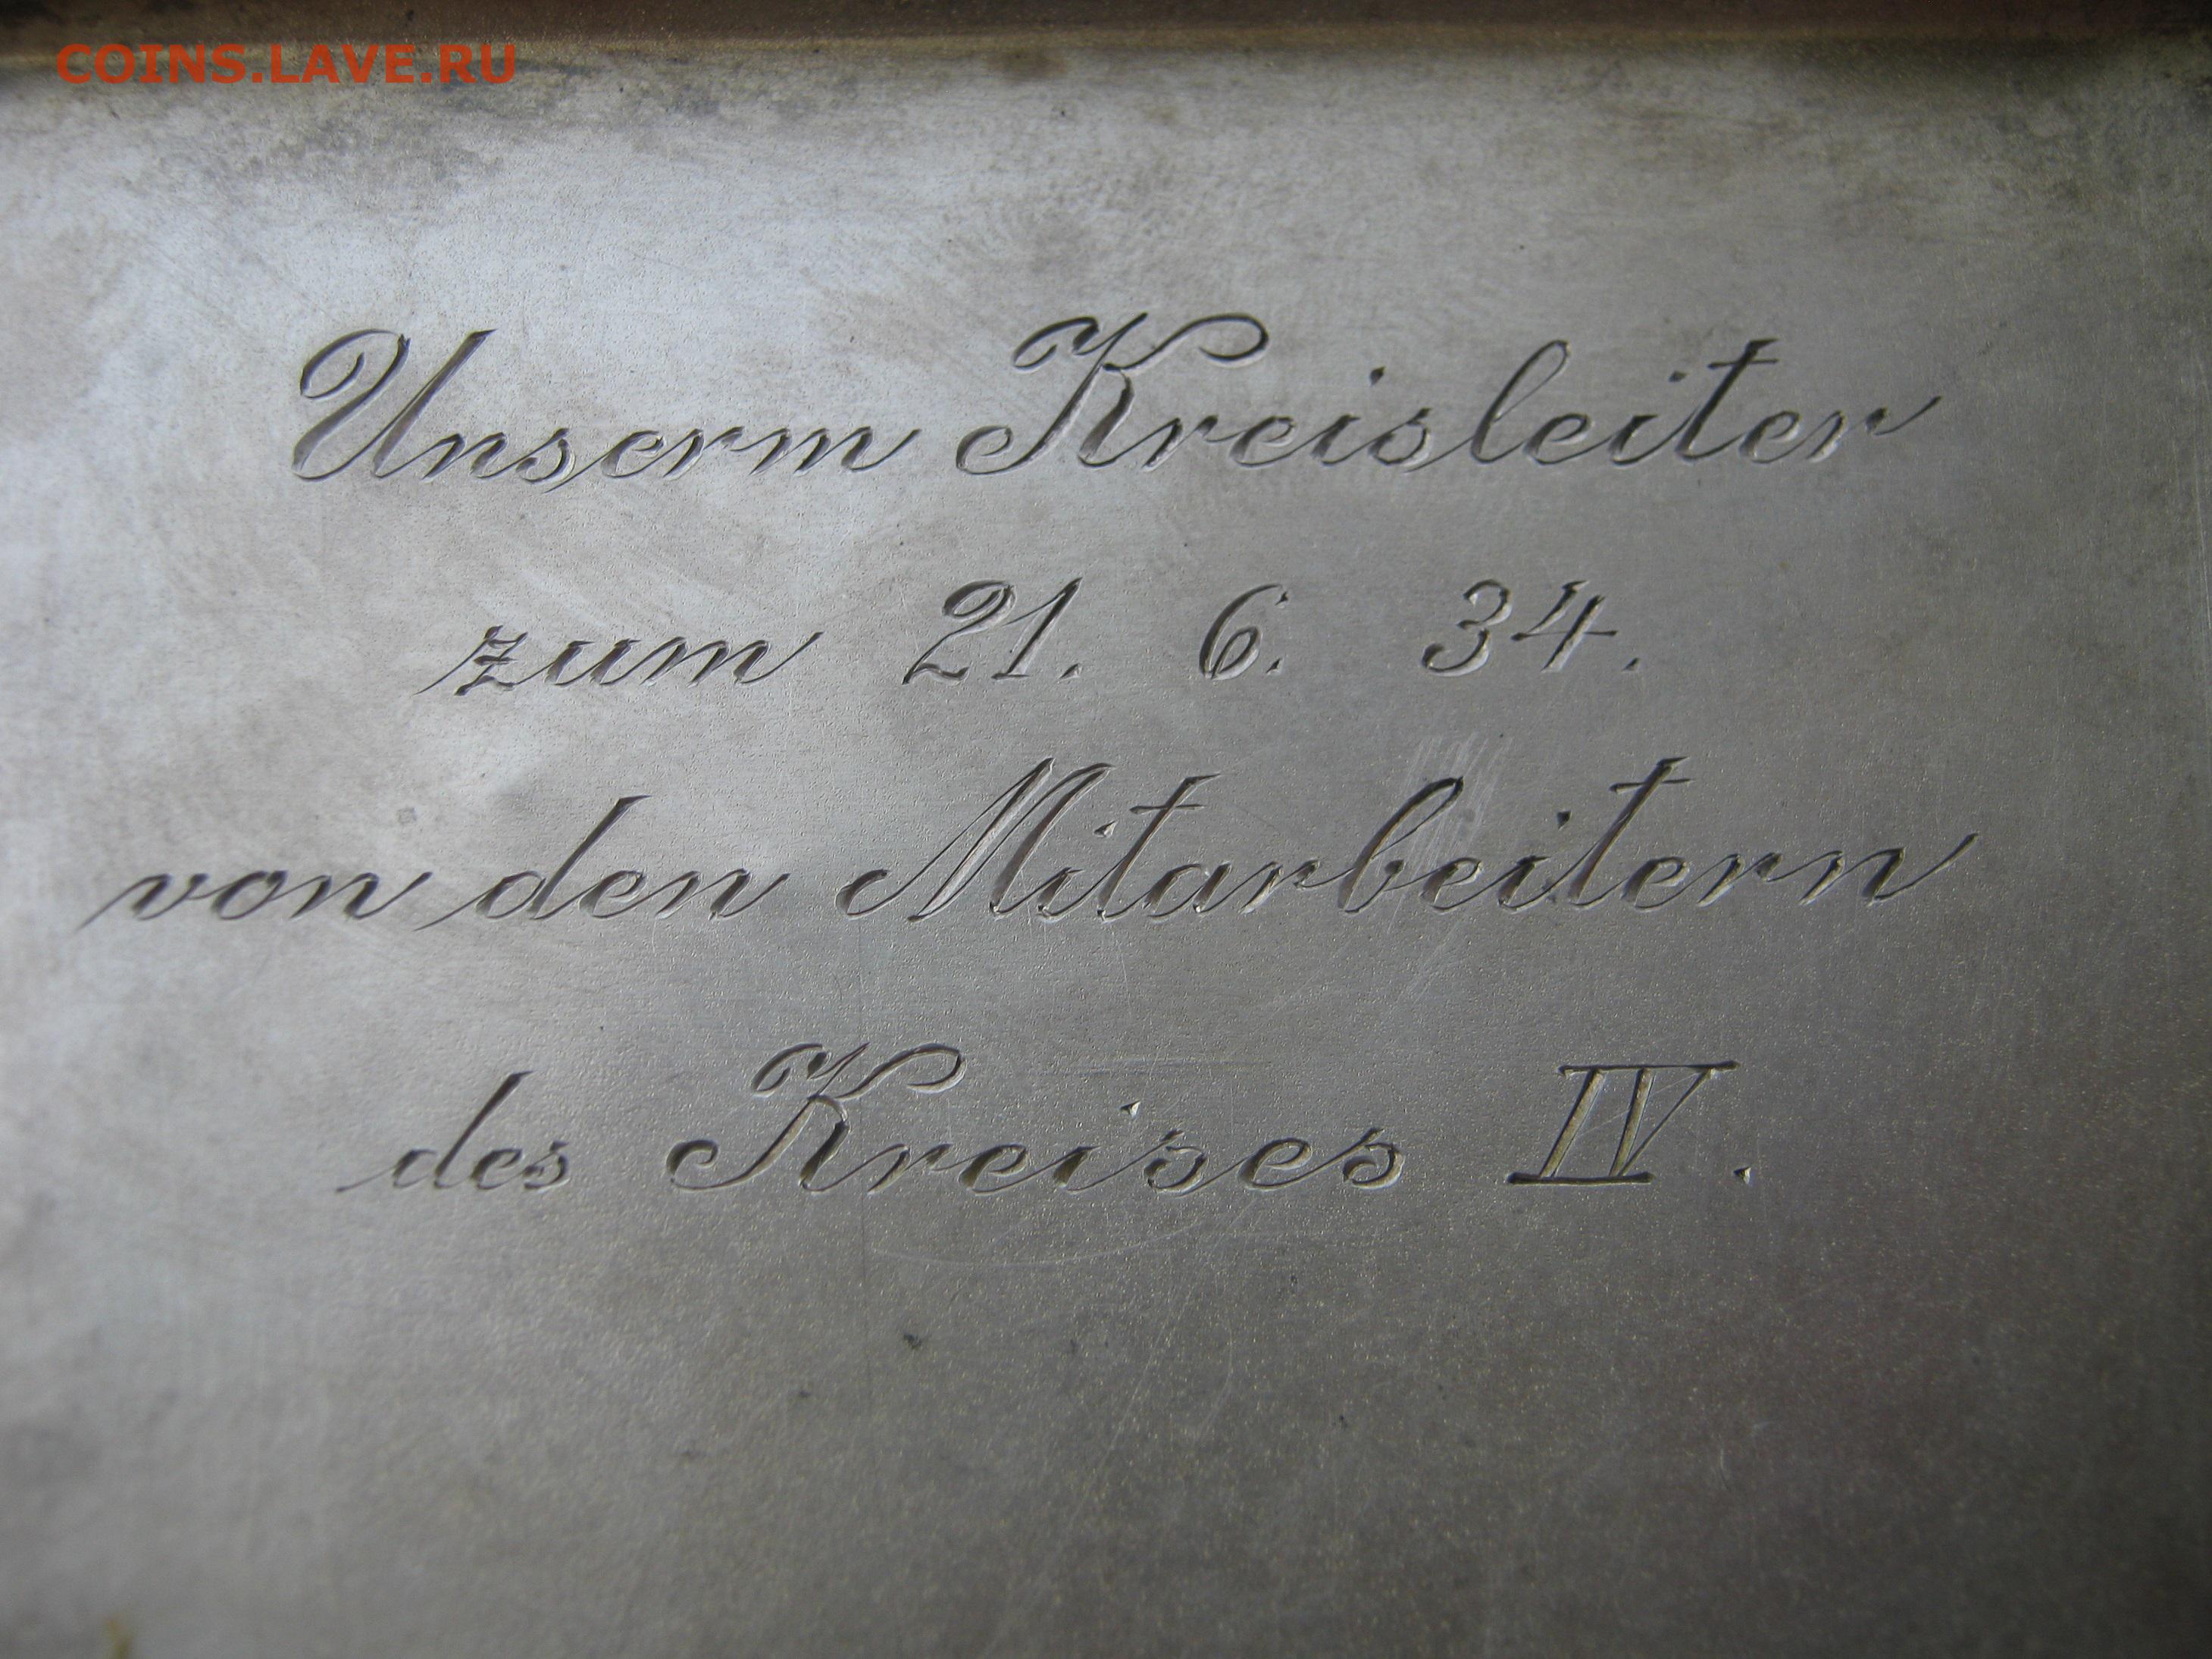 COINS.LAVE.RU
Unserm Kreisleiter
zum 21. 6. 34.
von den Mitarbeitern
des Kreises IV.